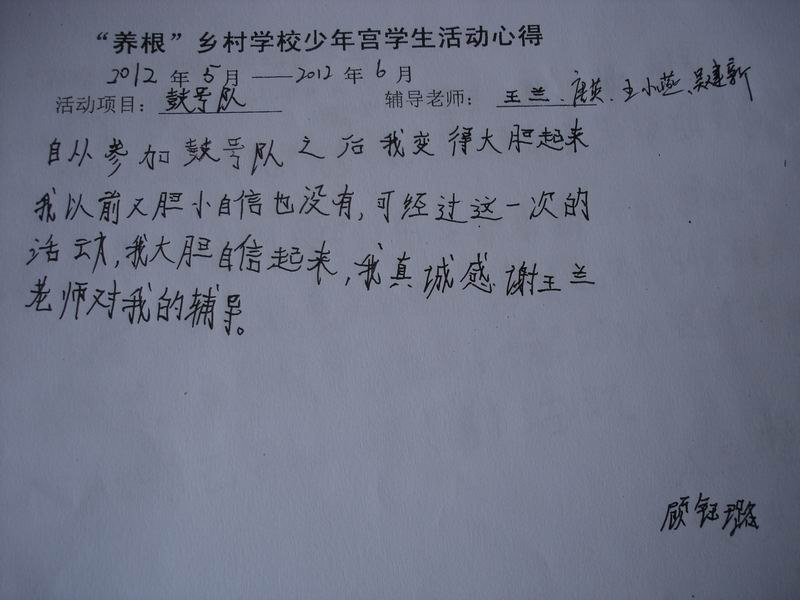 “养根”乡村学校少年宫学生活动心得
2012 年 5 月 ——2012 年 6 月
活动项目：鼓号队 辅导老师：王兰、唐英、王小燕、吴建新
自从参加鼓号队之后我变得大胆起来
我以前又胆小自信也没有，可经过这一次的
活动，我大胆自信起来，我真城感谢王兰
老师对我的辅导。
顾钰璐